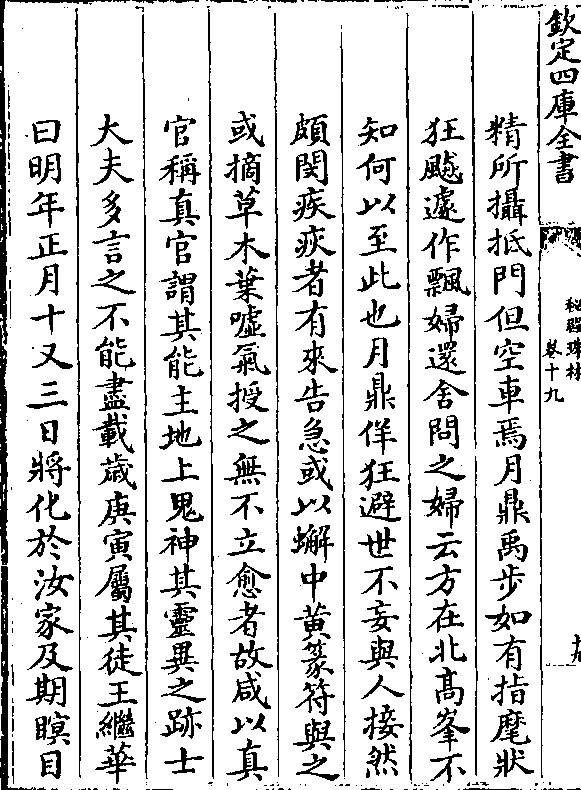 欽定四庫全書
卷十九
精所攝抵門但空車焉月鼎禹步如有指麾狀
狂飈遽作飄婦還舍問之婦云方在北髙峯不
知何以至此也月鼎佯狂避世不妄與人接然
頗閔疾疢者有來告急或以蠏中黄篆符與之
或摘草木葉噓氣授之無不立愈者故咸以真
官稱真官謂其能主地上鬼神其靈異之跡士
大夫多言之不能盡載歲庚寅屬其徒王繼華
曰明年正月十又三日將化於汝家及期瞑目